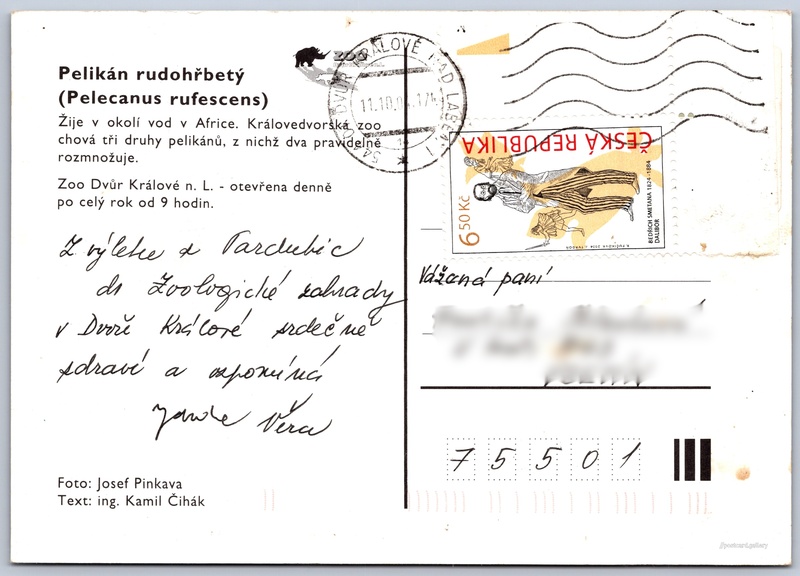 Pelikán rudohřbetý
(Pelecanus rufescens)
Žije v okolí vod v Africe. Královedvorská zoo
chová tři druhy pelikánů, z nichž dva pravidelně
rozmnožuje.
Zoo Dvůr Králové n. L. - otevřena denně
po celý rok od 9 hodin.
Z výletu z Pardubic
do Zoologické zahrady
v Dvoře Králové srdečně
zdraví a vzpomíná
Věra
Foto: Josef Pinkava
Text: ing. Kamil Čihák
ZOO
DVŮR KRÁLOVÉ NAD LABEM 1
ČESKÁ REPUBLIKA
6,50 Kč
BEDŘICH SMETANA 1824-1884
DALIBOR
Vážená paní
7 5 5 0 1